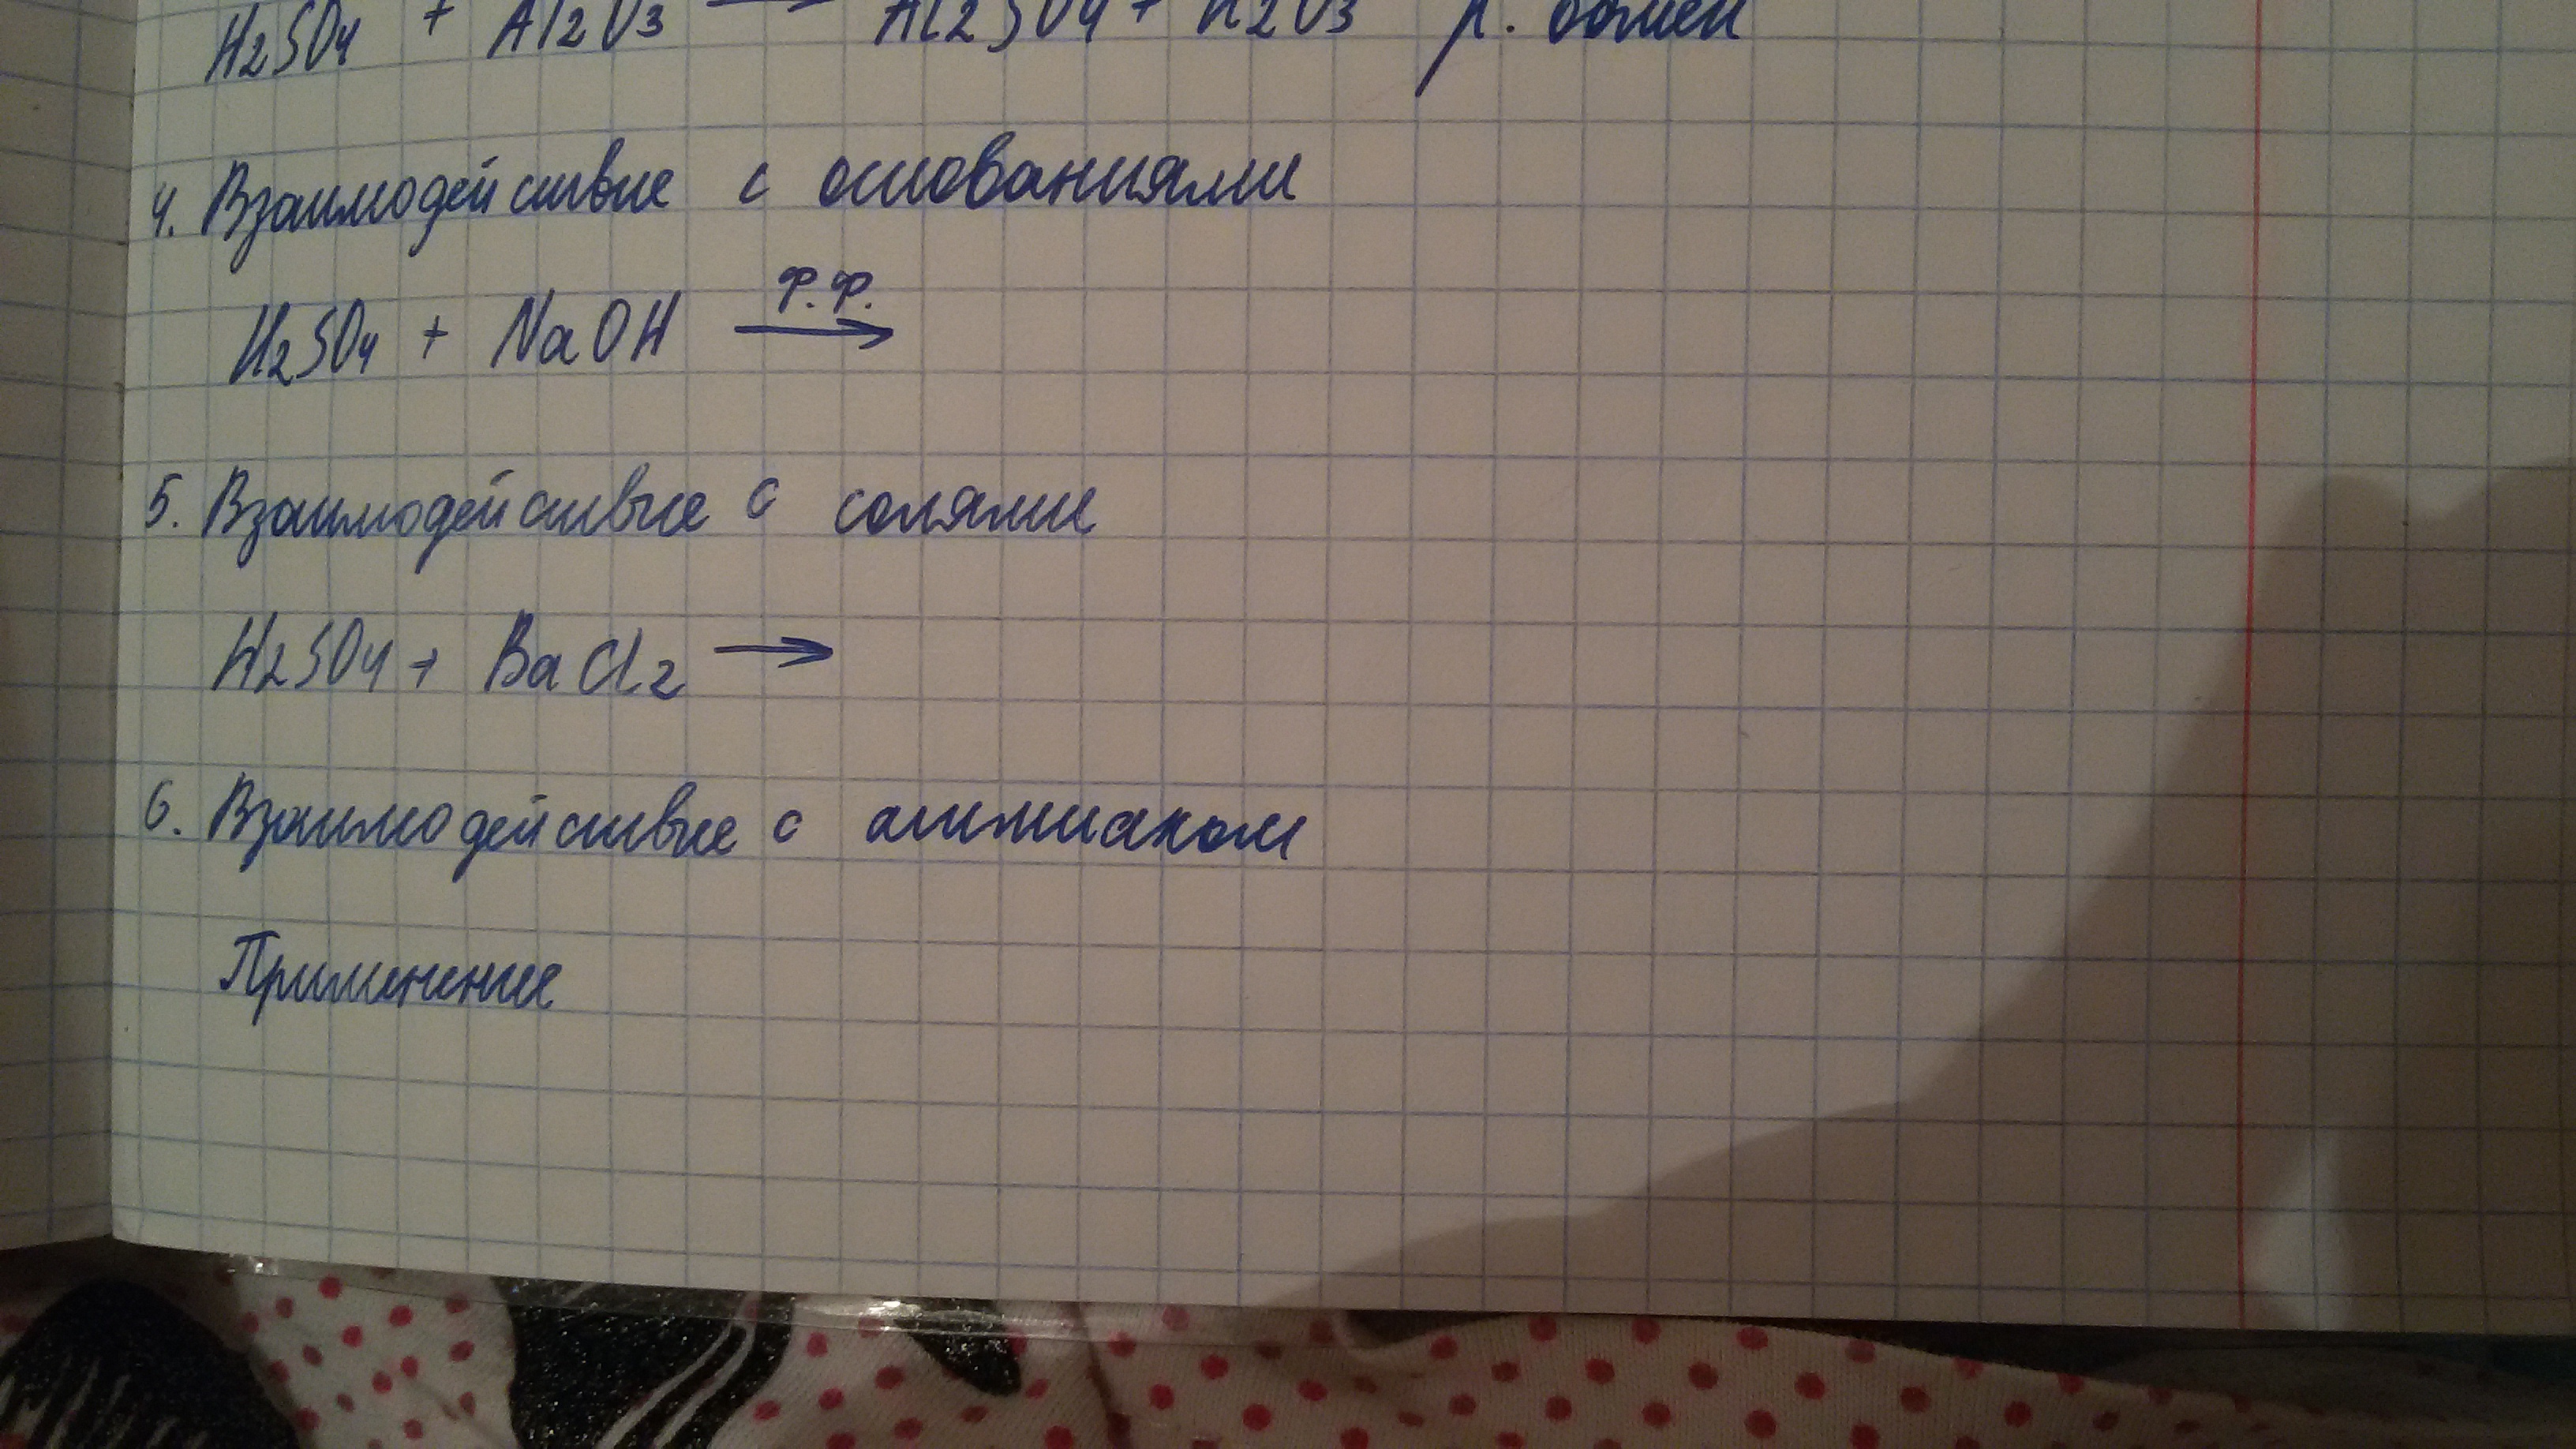 H2SO4 + Al2O3 → Al2SO4 + H2O3 р. обмен
4. Взаимодействие с основаниями
H2SO4 + NaOH ф.ф. →
5. Взаимодействие с солями
H2SO4 + BaCl2 →
6. Взаимодействие с аммиаком
Применение